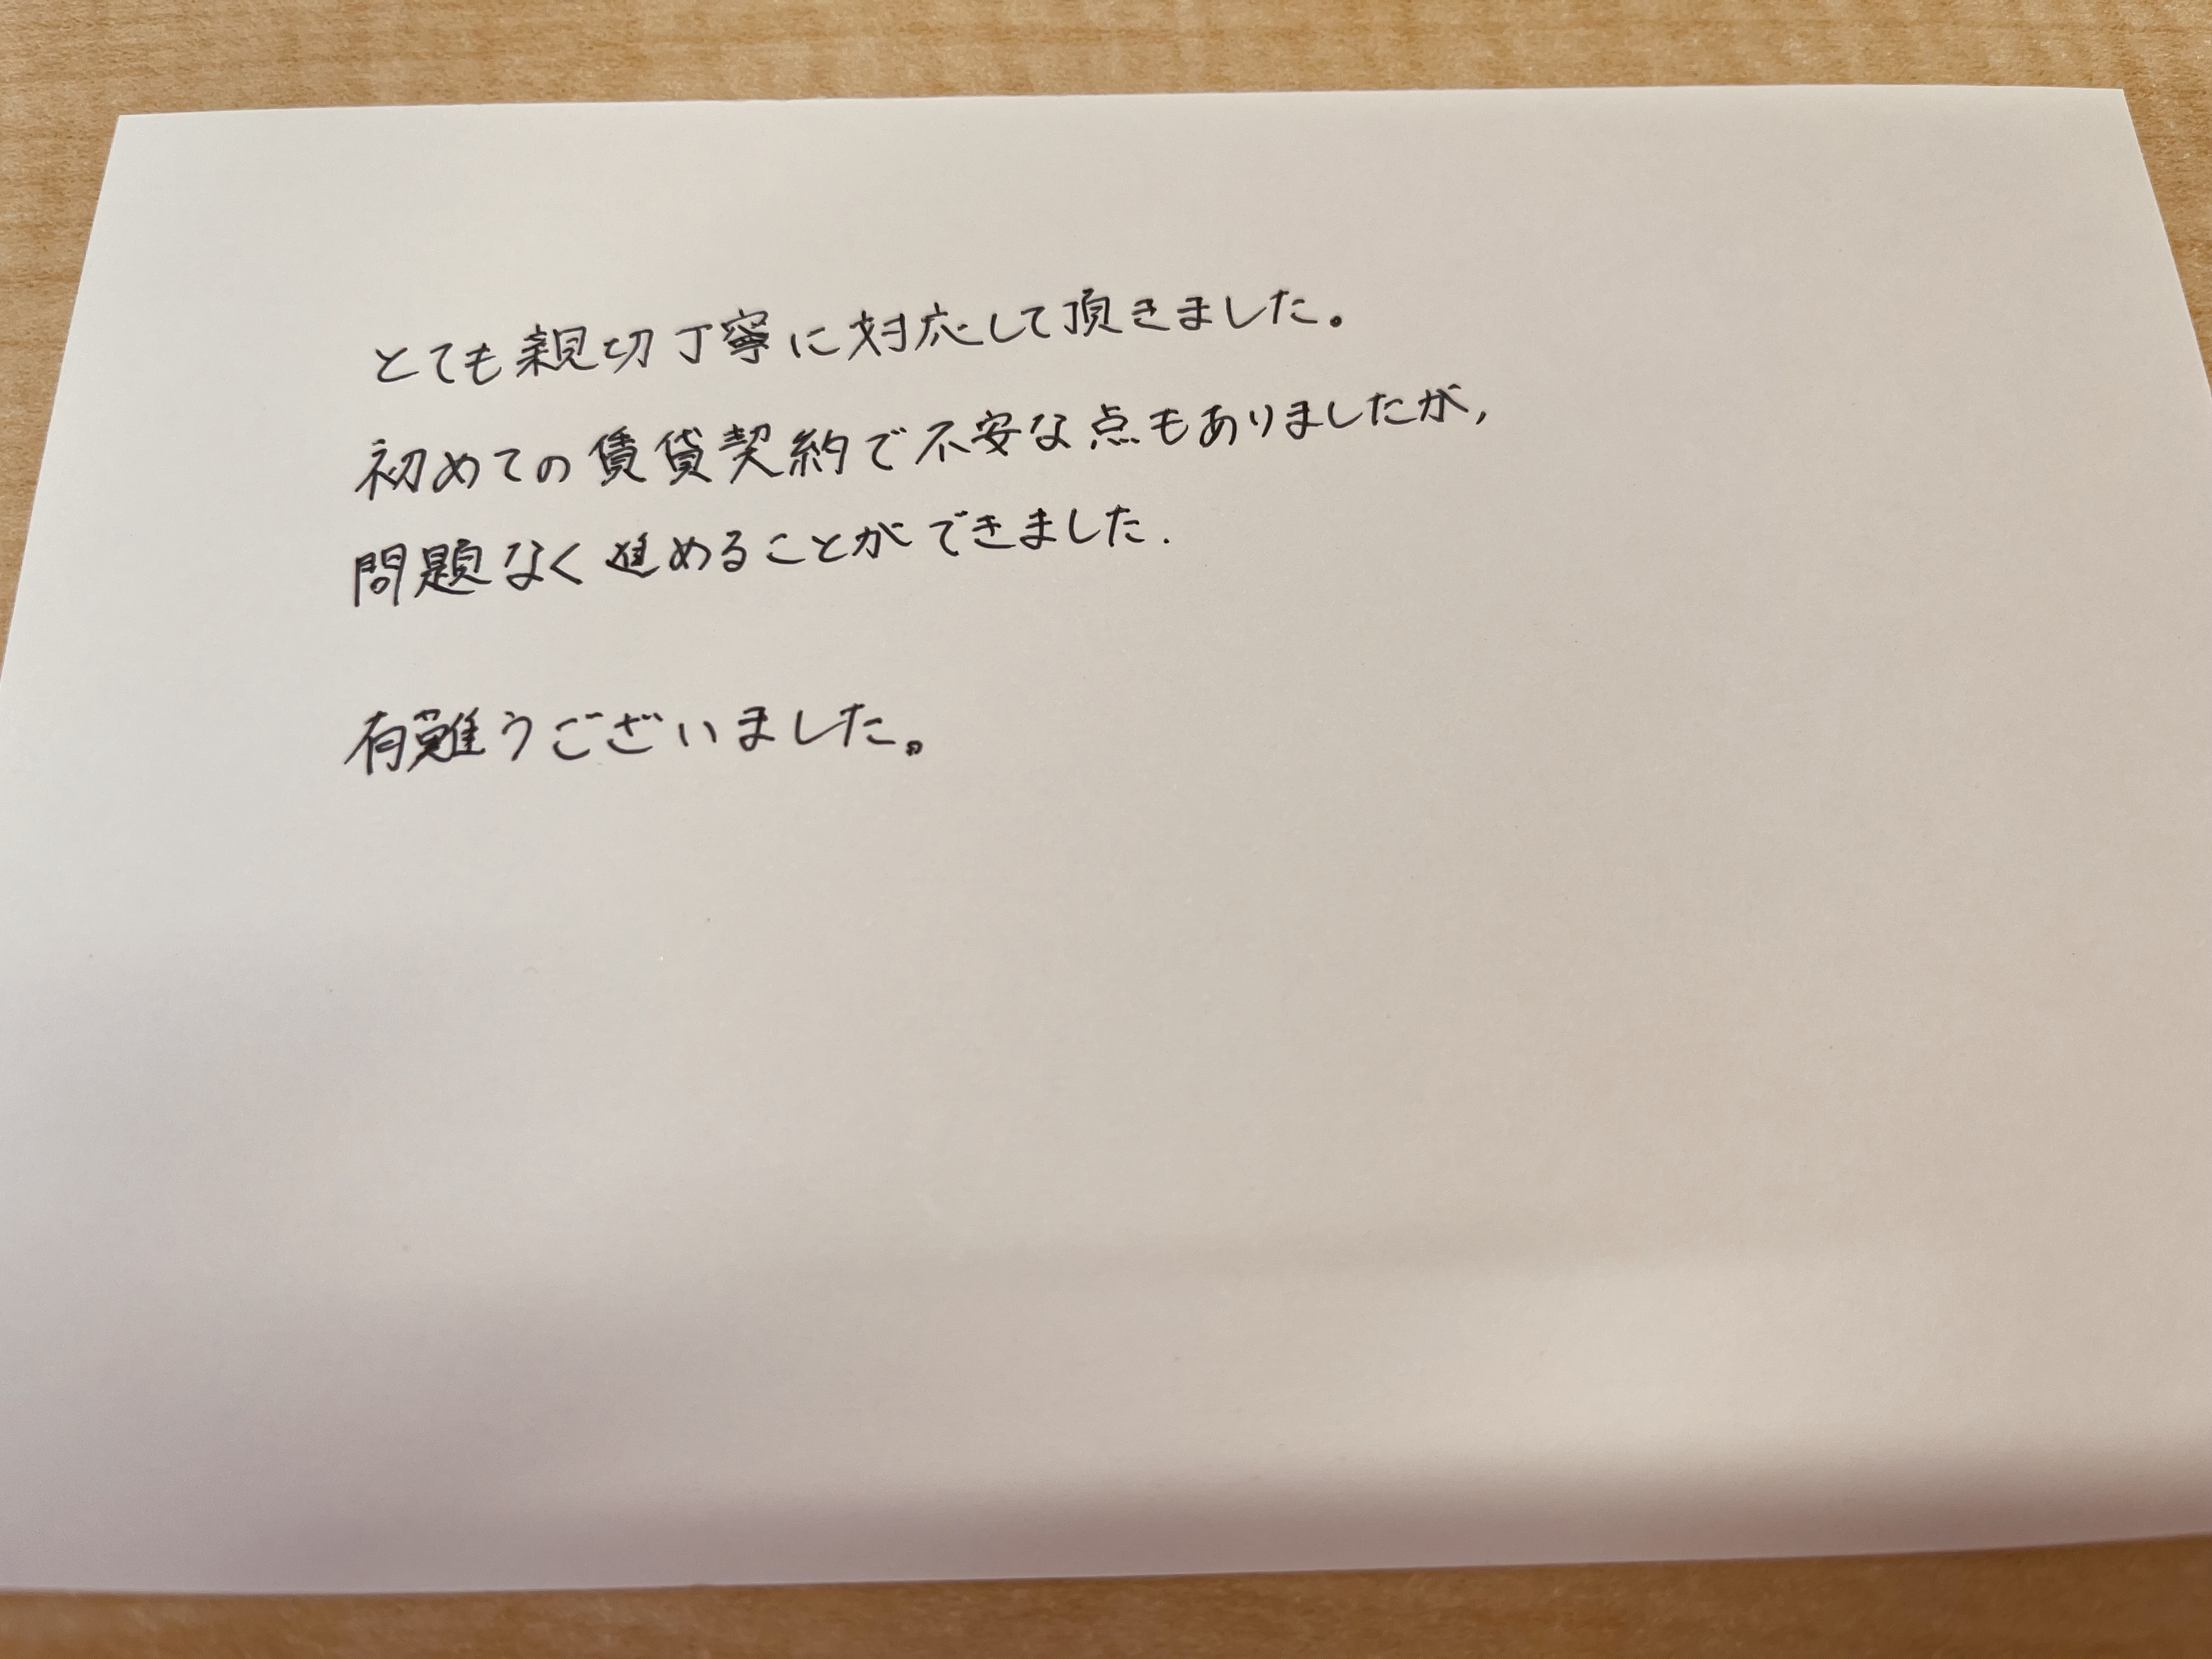 とても親切丁寧に対応して頂きました。
初めての賃貸契約で不安な点もありましたが,
問題なく進めることができました.
有難うございました。